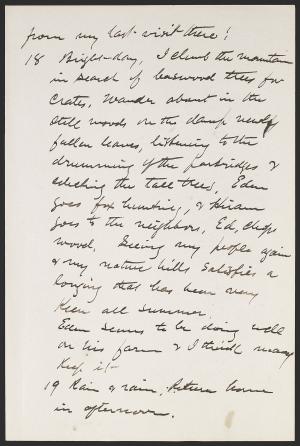 from my last visit there!
18 Bright-day, I climb the mountain
in search of basswood trees for
crates. Wander about in the
still woods on the damp newly
fallen leaves, listening to the
drumming of the partridges &
the tall trees, Eden
goes fox hunting, & Hiram
goes to the neighbors, Ed, chops
wood. Seeing my people again
& my native hills satisfies a
longing that has been very
keen all summer.
Eden seems to be doing well
on his farm & I think may
keep it-
19 Rain & rain; Return home
in afternoon.